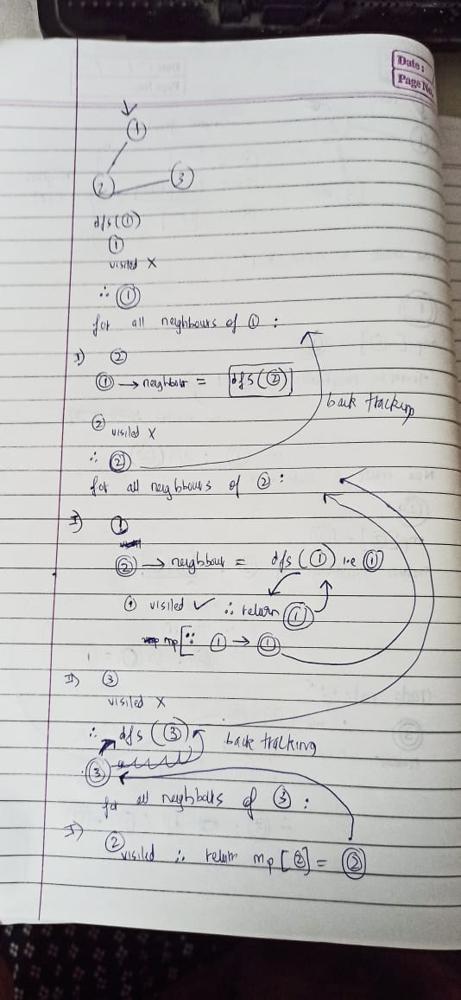 Date:
Page No.
1
2 3
dfs(1)
1
visited X
∴ 1
for all neighbours of 1 :
I) 2
1 → neighbour = dfs(2)
back tracking
2 visited X
∴ 2
for all neighbours of 2 :
I) 1
2 → neighbour = dfs(1) i.e 1
1 visited ✓ ∴ return 1
mp[∵ 1 → 1
II) 3
visited X
∴ dfs(3) back tracking
3
for all neighbours of 3 :
I) 2 visited ∴ return mp[2] = 2